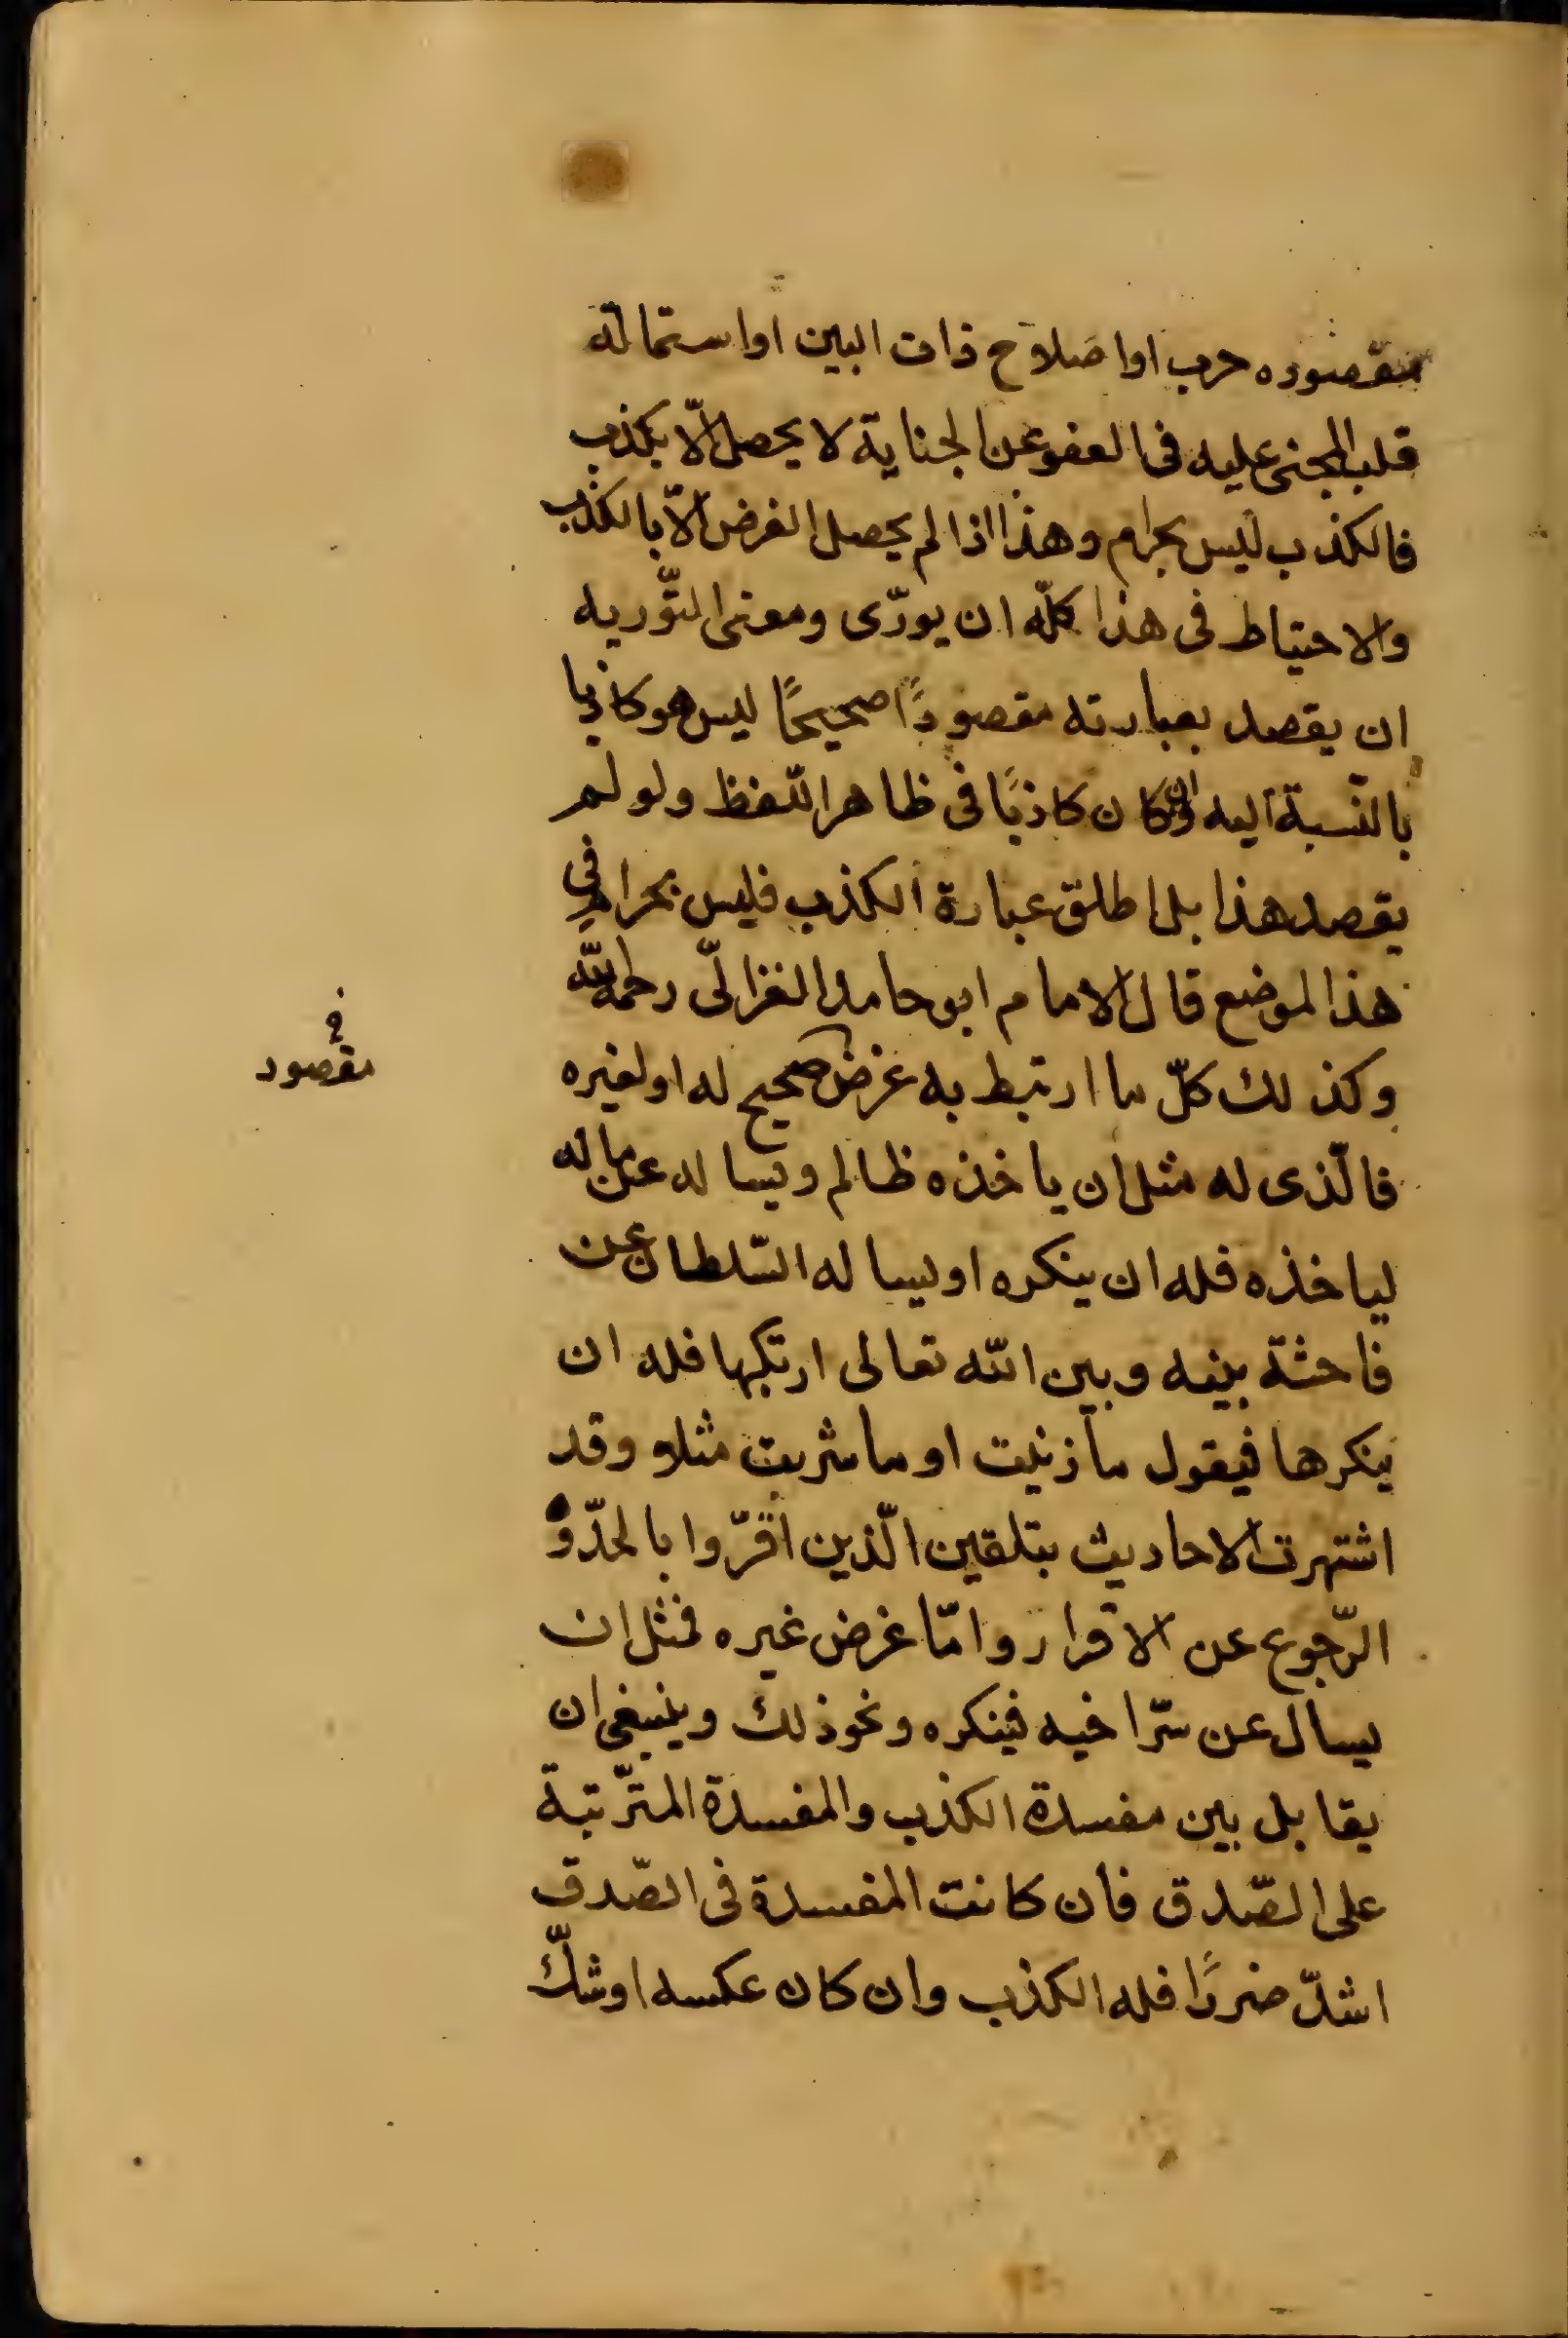 مقصوده حرب او اصلاح ذات البين او استمالة
قلب المجنى عليه فى العفو عن الجناية لا يحصل الّا بكذب
فالكذب ليس بحرام وهذا اذا لم يحصل الغرض الّا بالكذب
والاحتياط فى هذا كلّه ان يورّى ومعنى التّوريه
ان يقصد بعبارته مقصودًا صحيحًا ليس هو كاذبا
بالنّسبة اليه وان كان كاذبًا فى ظاهر اللّفظ ولو لم
يقصد هذا بل اطلق عبارة الكذب فليس بحرام فى
هذا الموضع قال الامام ابو حامد الغزالّى رحمه الله
وكذلك كلّ ما ارتبط به غرض صحيح له او لغيره
مقصود
فالّذى له مثل ان ياخذه ظالم ويساله عن ماله
لياخذه فله ان ينكره او يساله السّلطان عن
فاحشة بينه وبين الله تعالى ارتكبها فله ان
ينكرها فيقول ما زنيت او ما شربت مثلا وقد
اشتهرت الاحاديث بتلقين الّذين اقرّوا بالحدّود
الرّجوع عن الاقرار وامّا غرض غيره فمثل ان
يسال عن سرّ اخيه فينكره ونحو ذلك وينبغى ان
يقابل بين مفسدة الكذب والمفسدة المترّتبة
على الصّدق فان كانت المفسدة فى الصّدق
اشدّ ضررًا فله الكذب وان كان عكسه او شكّ